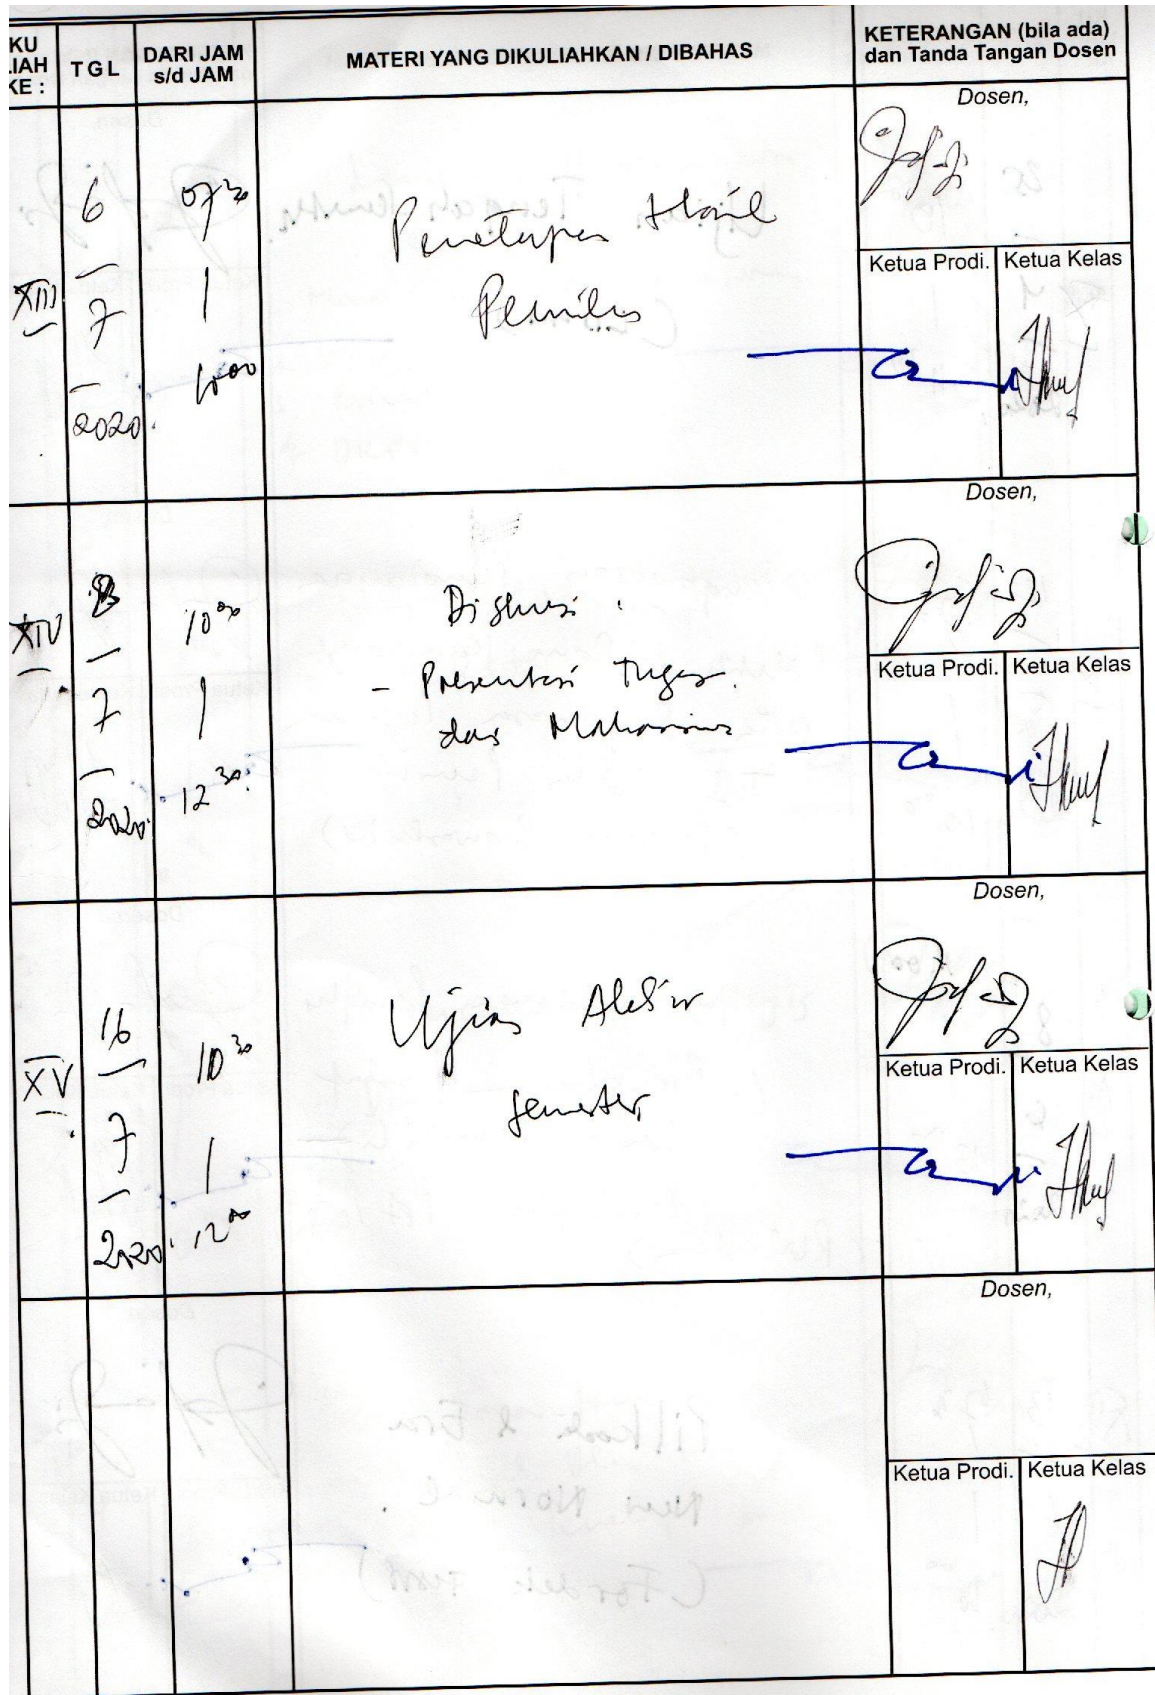 KU
LIAH
KE :
TGL
DARI JAM
s/d JAM
MATERI YANG DIKULIAHKAN / DIBAHAS
KETERANGAN (bila ada)
dan Tanda Tangan Dosen
XIII
6
7
2020.
07 30
10 00
Penetapan Hasil
Pemilu
Dosen,
Ketua Prodi.
Ketua Kelas
XIV
8
7
2020
10 00
12 30
Diskusi :
- Presentasi Tugas
dari Mahasiswa
Dosen,
Ketua Prodi.
Ketua Kelas
XV
16
7
2020
10 30
12 00
Ujian Akhir
Semester
Dosen,
Ketua Prodi.
Ketua Kelas
Dosen,
Ketua Prodi.
Ketua Kelas